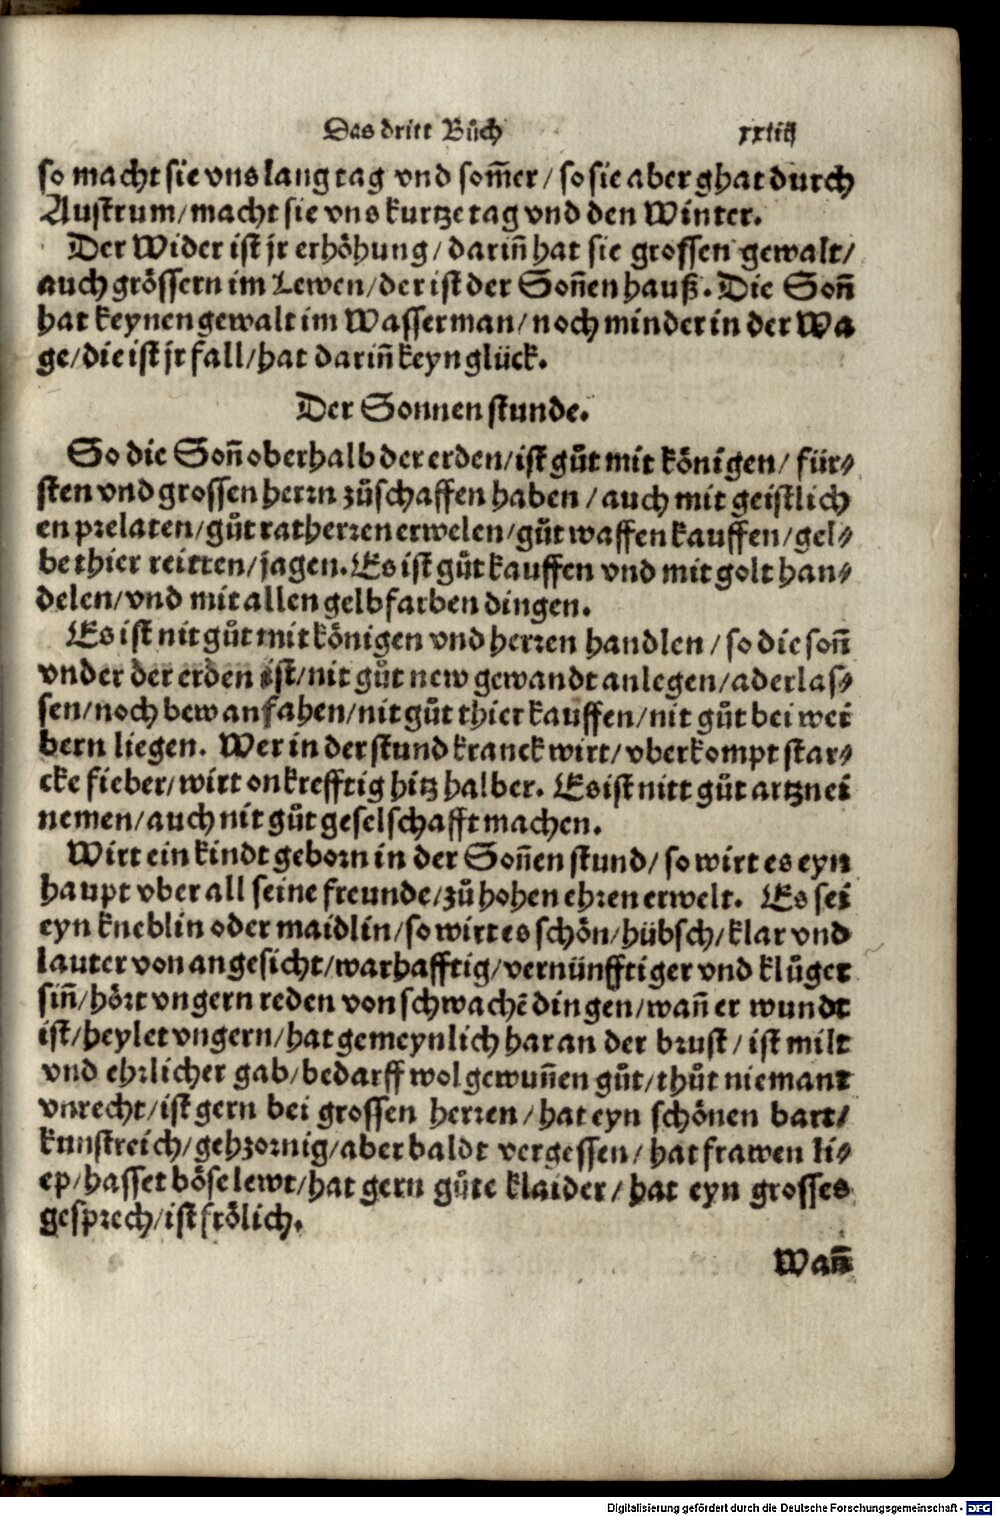 Das dritt Bůch xxiiij
so macht sie vns lang tag vnd som̄er / so sie aber ghat durch
Austrum / macht sie vns kurtze tag vnd den Winter.
Der Wider ist jr erhöhung / darin̄ hat sie grossen gewalt /
auch grössern im Lewen / der ist der Son̄en hauß. Die Son̄
hat keynen gewalt im Wasserman / noch minder in der Wa
ge / die ist jr fall / hat darin̄ keyn glück.
Der Sonnen stunde.
So die Son̄ oberhalb der erden / ist gůt mit königen / für⸗
sten vnd grossen herrn zůschaffen haben / auch mit geistlich
en prelaten / gůt ratherren erwelen / gůt waffen kauffen / gel⸗
be thier reitten / jagen. Es ist gůt kauffen vnd mit golt han⸗
delen / vnd mit allen gelbfarben dingen.
Es ist nit gůt mit königen vnd herren handlen / so die son̄
vnder der erden ist / nit gůt new gewandt anlegen / aderlas⸗
sen / noch bew anfahen / nit gůt thier kauffen / nit gůt bei wei
bern liegen. Wer in der stund kranck wirt / vberkompt star⸗
cke fieber / wirt onkrefftig hitz halber. Es ist nitt gůt artznei
nemen / auch nit gůt geselschafft machen.
Wirt ein kindt geborn in der Son̄en stund / so wirt es eyn
haupt vber all seine freunde / zů hohen ehren erwelt. Es sei
eyn kneblin oder maidlin / so wirt es schön / hübsch / klar vnd
lauter von angesicht / warhafftig / vernünfftiger vnd klůger
sin̄ / hört vngern reden von schwachē dingen / wan̄ er wundt
ist / heylet vngern / hat gemeynlich har an der brust / ist milt
vnd ehrlicher gab / bedarff wol gewun̄en gůt / thůt niemant
vnrecht / ist gern bei grossen herren / hat eyn schönen bart /
kunstreich / gehzornig / aber baldt vergessen / hat frawen li⸗
ep / hasset böse lewt / hat gern gůte klaider / hat eyn grosses
gesprech / ist frölich.
Wan̄
Digitalisierung gefördert durch die Deutsche Forschungsgemeinschaft - DFG